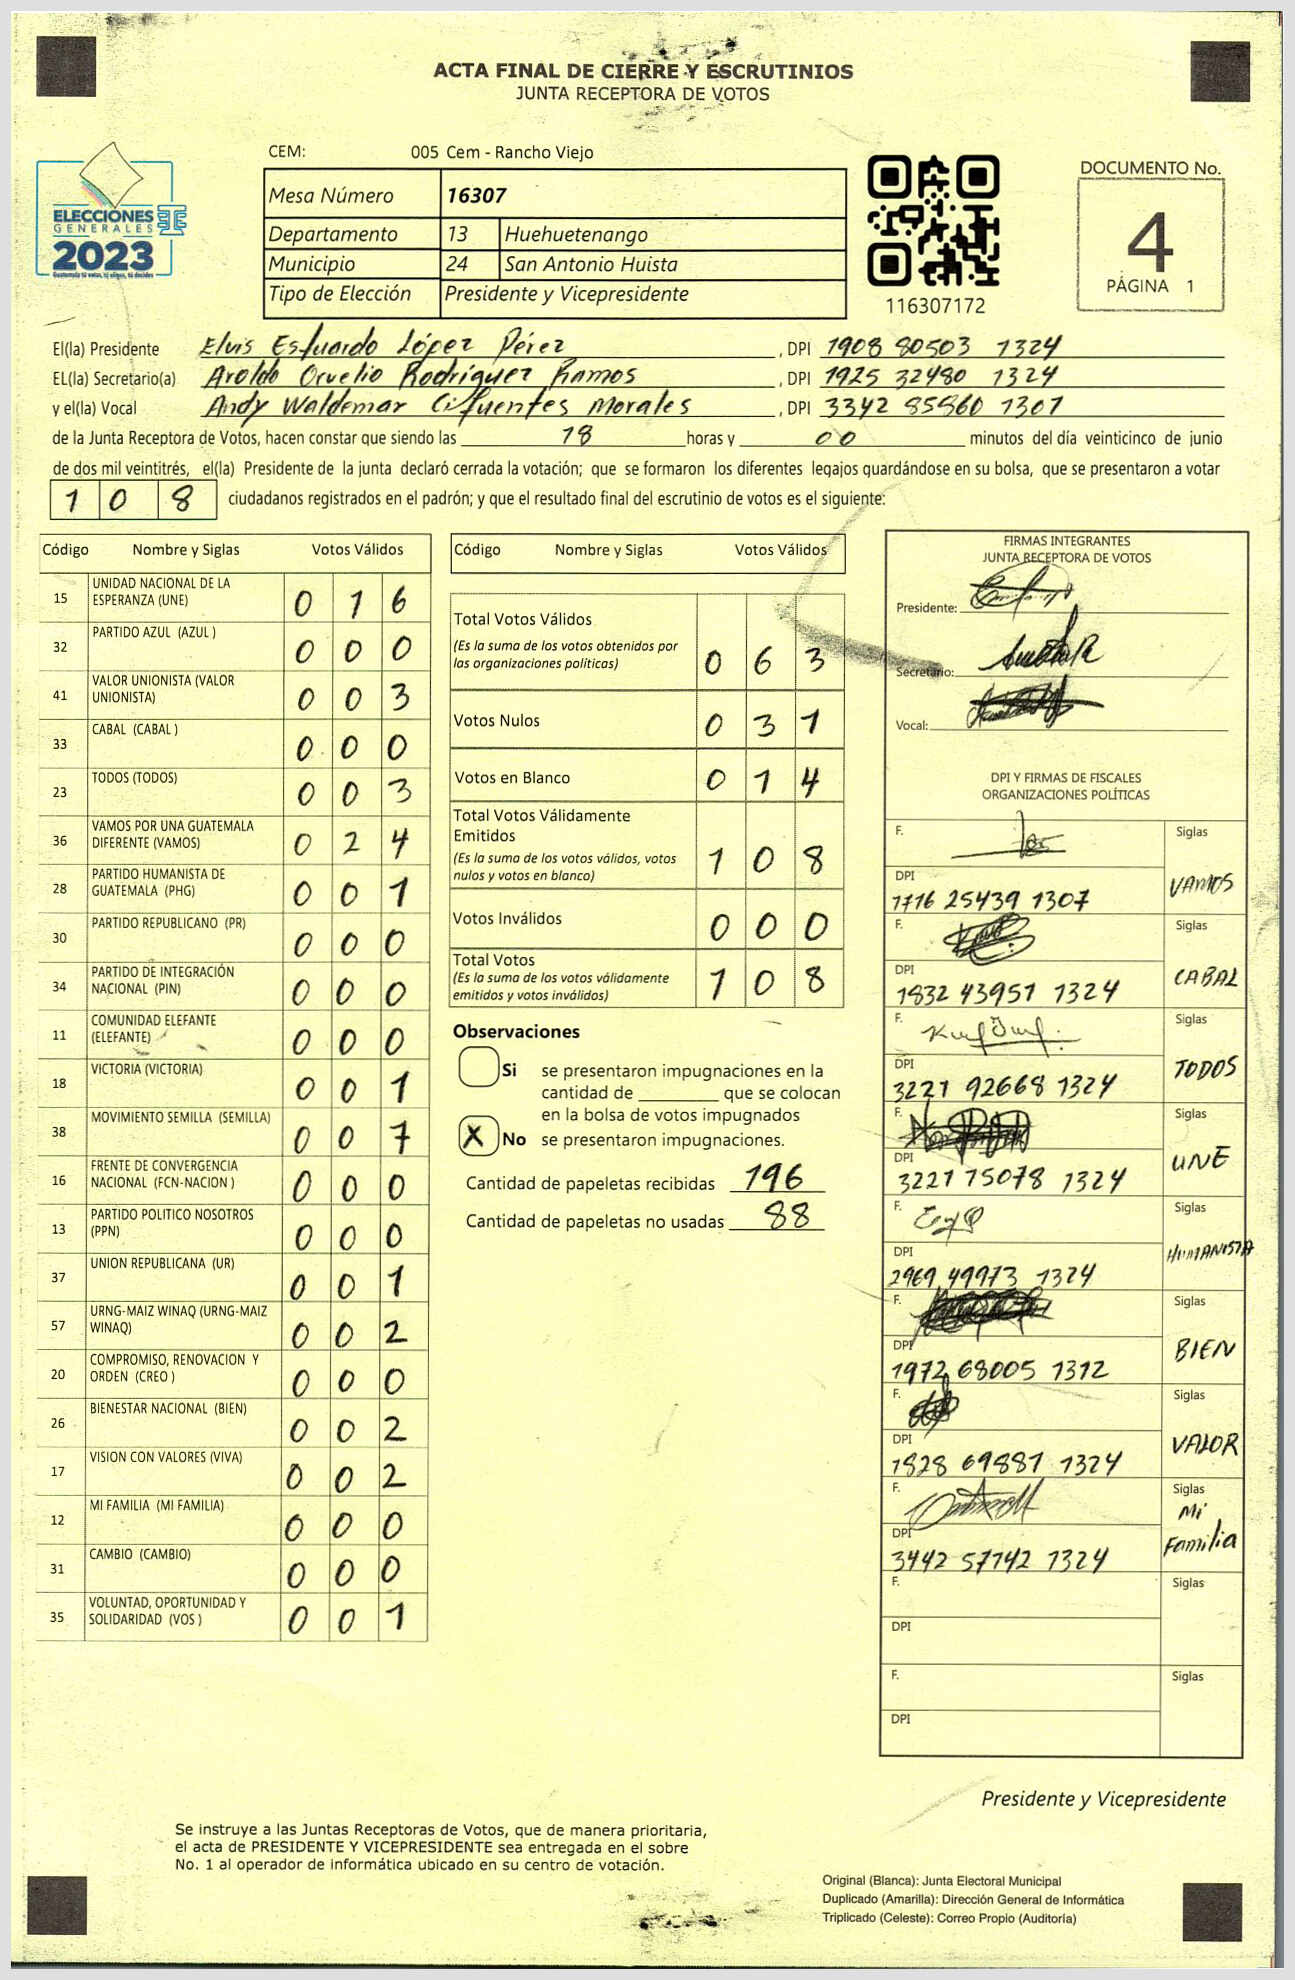 ACTA FINAL DE CIERRE Y ESCRUTINIOS
JUNTA RECEPTORA DE VOTOS
CEM: 005 Cem - Rancho Viejo
ELECCIONES
GENERALES
2023
Guatemala tú votas, tú eliges, tú decides
Mesa Número 16307
Departamento 13 Huehuetenango
Municipio 24 San Antonio Huista
Tipo de Elección Presidente y Vicepresidente
116307172
DOCUMENTO No.
4
PÁGINA 1
El(la) Presidente Elvis Estuardo López Pérez, DPI 1908 80503 1324
EL(la) Secretario(a) Aroldo Orvelio Rodríguez Ramos, DPI 1925 32480 1324
y el(la) Vocal Andy Waldemar Cifuentes Morales, DPI 3342 85860 1307
de la Junta Receptora de Votos, hacen constar que siendo las 18 horas y 00 minutos del día veinticinco de junio
de dos mil veintitrés, el(la) Presidente de la junta declaró cerrada la votación; que se formaron los diferentes legajos guardándose en su bolsa, que se presentaron a votar
1 0 8 ciudadanos registrados en el padrón; y que el resultado final del escrutinio de votos es el siguiente:
Código Nombre y Siglas Votos Válidos
15 UNIDAD NACIONAL DE LA
ESPERANZA (UNE) 0 1 6
32 PARTIDO AZUL (AZUL ) 0 0 0
41 VALOR UNIONISTA (VALOR
UNIONISTA) 0 0 3
33 CABAL (CABAL ) 0 0 0
23 TODOS (TODOS) 0 0 3
36 VAMOS POR UNA GUATEMALA
DIFERENTE (VAMOS) 0 2 4
28 PARTIDO HUMANISTA DE
GUATEMALA (PHG) 0 0 1
30 PARTIDO REPUBLICANO (PR) 0 0 0
34 PARTIDO DE INTEGRACIÓN
NACIONAL (PIN) 0 0 0
11 COMUNIDAD ELEFANTE
(ELEFANTE) 0 0 0
18 VICTORIA (VICTORIA) 0 0 1
38 MOVIMIENTO SEMILLA (SEMILLA) 0 0 7
16 FRENTE DE CONVERGENCIA
NACIONAL (FCN-NACION ) 0 0 0
13 PARTIDO POLITICO NOSOTROS
(PPN) 0 0 0
37 UNION REPUBLICANA (UR) 0 0 1
57 URNG-MAIZ WINAQ (URNG-MAIZ
WINAQ) 0 0 2
20 COMPROMISO, RENOVACION Y
ORDEN (CREO ) 0 0 0
26 BIENESTAR NACIONAL (BIEN) 0 0 2
17 VISION CON VALORES (VIVA) 0 0 2
12 MI FAMILIA (MI FAMILIA) 0 0 0
31 CAMBIO (CAMBIO) 0 0 0
35 VOLUNTAD, OPORTUNIDAD Y
SOLIDARIDAD (VOS ) 0 0 1
Código Nombre y Siglas Votos Válidos
Total Votos Válidos
(Es la suma de los votos obtenidos por
las organizaciones políticas) 0 6 3
Votos Nulos 0 3 1
Votos en Blanco 0 1 4
Total Votos Válidamente
Emitidos
(Es la suma de los votos válidos, votos
nulos y votos en blanco) 1 0 8
Votos Inválidos 0 0 0
Total Votos
(Es la suma de los votos válidamente
emitidos y votos inválidos) 1 0 8
Observaciones
Si se presentaron impugnaciones en la
cantidad de ________ que se colocan
en la bolsa de votos impugnados
X No se presentaron impugnaciones.
Cantidad de papeletas recibidas 196
Cantidad de papeletas no usadas 88
FIRMAS INTEGRANTES
JUNTA RECEPTORA DE VOTOS
Presidente:
Secretario:
Vocal:
DPI Y FIRMAS DE FISCALES
ORGANIZACIONES POLÍTICAS
F. Siglas
DPI VAMOS
1716 25439 1307
F. Siglas
DPI CABAL
1832 43951 1324
F. Siglas
DPI TODOS
3221 92668 1324
F. Siglas
DPI UNE
3221 75078 1324
F. Siglas
DPI HUMANISTA
2969 49973 1324
F. Siglas
DPI BIEN
1972 68005 1312
F. Siglas
DPI VALOR
1828 69881 1324
F. Siglas
DPI Mi Familia
3442 57742 1324
F. Siglas
DPI
F. Siglas
DPI
Presidente y Vicepresidente
Se instruye a las Juntas Receptoras de Votos, que de manera prioritaria,
el acta de PRESIDENTE Y VICEPRESIDENTE sea entregada en el sobre
No. 1 al operador de informática ubicado en su centro de votación.
Original (Blanca): Junta Electoral Municipal
Duplicado (Amarilla): Dirección General de Informática
Triplicado (Celeste): Correo Propio (Auditoría)